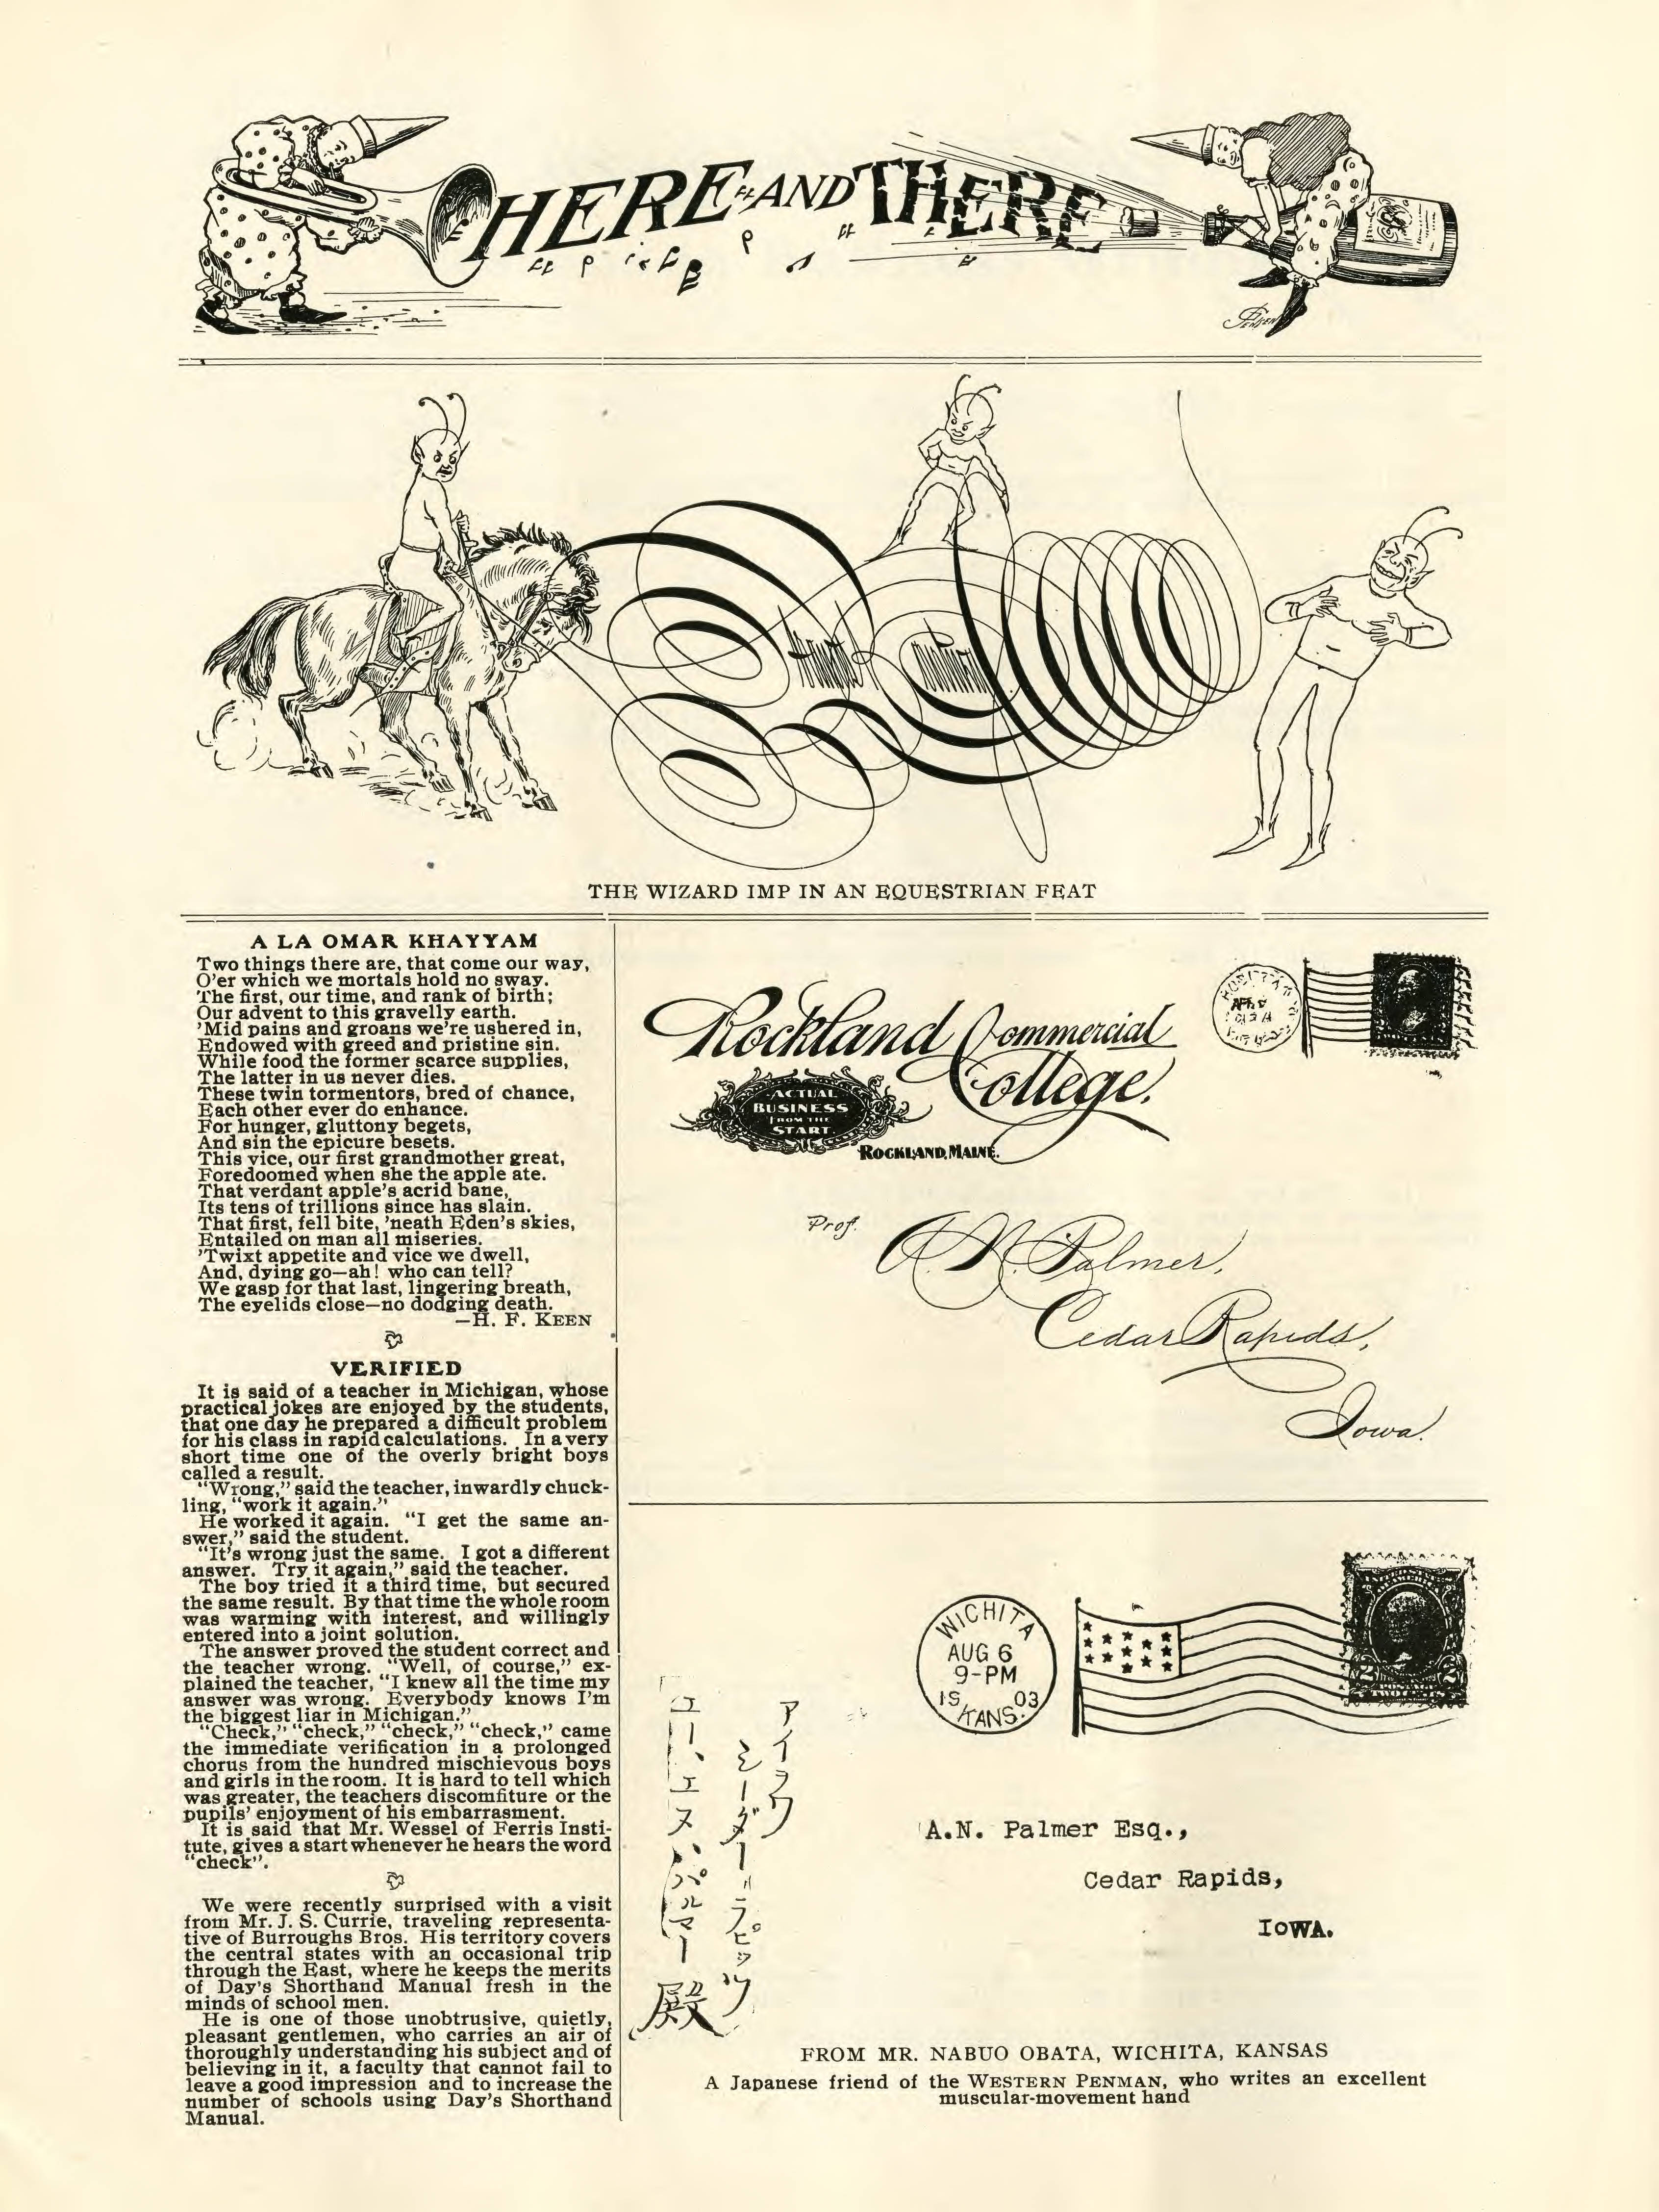 HERE AND THERE
THE WIZARD IMP IN AN EQUESTRIAN FEAT
A LA OMAR KHAYYAM
Two things there are, that come our way,
O'er which we mortals hold no sway.
The first, our time, and rank of birth;
Our advent to this gravelly earth.
'Mid pains and groans we're ushered in,
Endowed with greed and pristine sin.
While food the former scarce supplies,
The latter in us never dies.
These twin tormentors, bred of chance,
Each other ever do enhance.
For hunger, gluttony begets,
And sin the epicure besets.
This vice, our first grandmother great,
Foredoomed when she the apple ate.
That verdant apple's acrid bane,
Its tens of trillions since has slain.
That first, fell bite, 'neath Eden's skies,
Entailed on man all miseries.
'Twixt appetite and vice we dwell,
And, dying go—ah! who can tell?
We gasp for that last, lingering breath,
The eyelids close—no dodging death.
—H. F. KEEN
VERIFIED
It is said of a teacher in Michigan, whose
practical jokes are enjoyed by the students,
that one day he prepared a difficult problem
for his class in rapid calculations. In a very
short time one of the overly bright boys
called a result.
"Wrong," said the teacher, inwardly chuck-
ling, "work it again."
He worked it again. "I get the same an-
swer," said the student.
"It's wrong just the same. I got a different
answer. Try it again," said the teacher.
The boy tried it a third time, but secured
the same result. By that time the whole room
was warming with interest, and willingly
entered into a joint solution.
The answer proved the student correct and
the teacher wrong. "Well, of course," ex-
plained the teacher, "I knew all the time my
answer was wrong. Everybody knows I'm
the biggest liar in Michigan."
"Check," "check," "check," "check," came
the immediate verification in a prolonged
chorus from the hundred mischievous boys
and girls in the room. It is hard to tell which
was greater, the teachers discomfiture or the
pupils' enjoyment of his embarrasment.
It is said that Mr. Wessel of Ferris Insti-
tute, gives a start whenever he hears the word
"check".
We were recently surprised with a visit
from Mr. J. S. Currie, traveling representa-
tive of Burroughs Bros. His territory covers
the central states with an occasional trip
through the East, where he keeps the merits
of Day's Shorthand Manual fresh in the
minds of school men.
He is one of those unobtrusive, quietly,
pleasant gentlemen, who carries an air of
thoroughly understanding his subject and of
believing in it, a faculty that cannot fail to
leave a good impression and to increase the
number of schools using Day's Shorthand
Manual.
Rockland Commercial
College.
ACTUAL
BUSINESS
FROM THE
START.
ROCKLAND, MAINE.
Prof. A. N. Palmer,
Cedar Rapids,
Iowa.
WICHITA
AUG 6
9-PM
19 03
KANS.
2 2
アイヲワ
シーダーラピッツ
エー、エヌ、パルマー殿
A.N. Palmer Esq.,
Cedar Rapids,
IOWA.
FROM MR. NABUO OBATA, WICHITA, KANSAS
A Japanese friend of the WESTERN PENMAN, who writes an excellent
muscular-movement hand